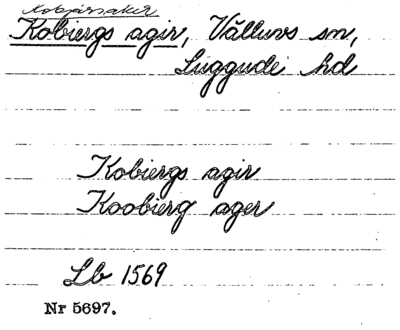 Kobjärsaker
Kobiergs agir, Välluvs sn,
Luggude hd
Kobiergs agir
Koobierg ager
Lb 1569
Nr 5697.